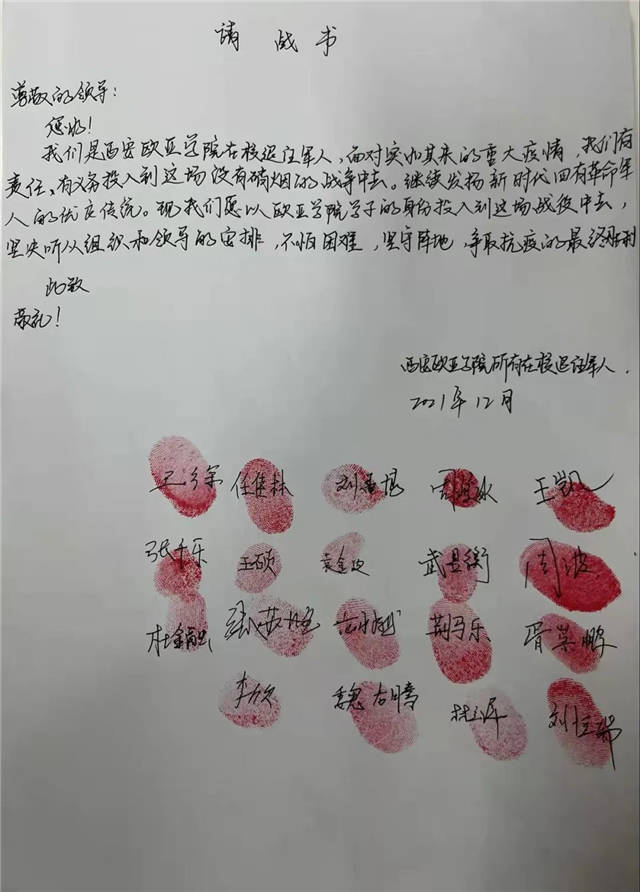 请战书
尊敬的领导：
您好！
我们是西安欧亚学院在校退伍军人，面对突如其来的重大疫情，我们有
责任、有义务投入到这场没有硝烟的战争中去。继续发扬新时代田有革命军
人的优良传统。现我们愿以欧亚学院学子的身份投入到这场战役中去，
坚决听从组织和领导的安排，不怕困难，坚守阵地，争取抗疫的最终胜利
此致
敬礼！
西安欧亚学院所有在校退伍军人.
2021年12月
任佳林 王凯
张千乐 王硕 武昱衡 周波
荆马乐 胥荣鹏
李欣 魏右晴 刘恒瑞